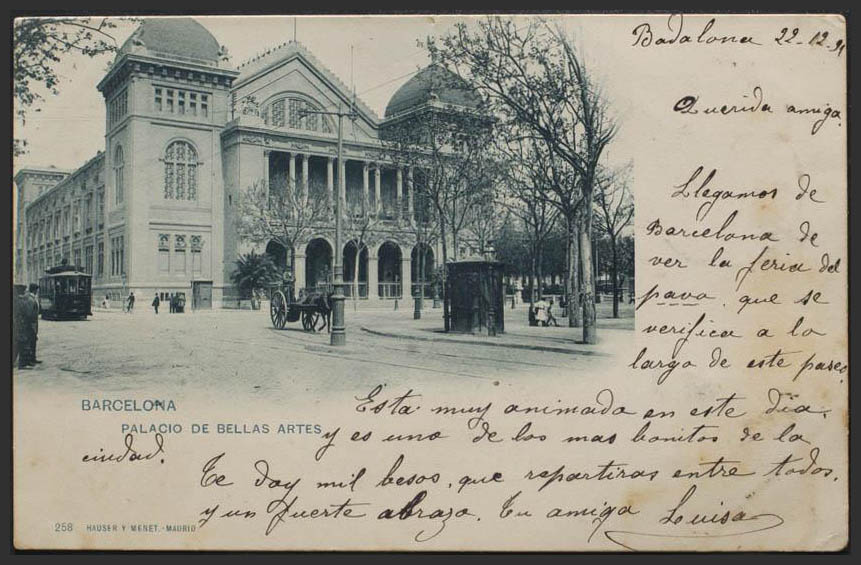 Badalona 22-12-91
Querida amiga.
Llegamos de
Barcelona de
ver la feria del
pavo, que se
verifica a lo
largo de este paseo,
Esta muy animado en este dia,
y es uno de los mas bonitos de la
ciudad.
Te doy mil besos, que repartiras entre todos,
y un fuerte abrazo. Tu amiga Louisa
BARCELONA
PALACIO DE BELLAS ARTES
258 HAUSER Y MENET.-MADRID